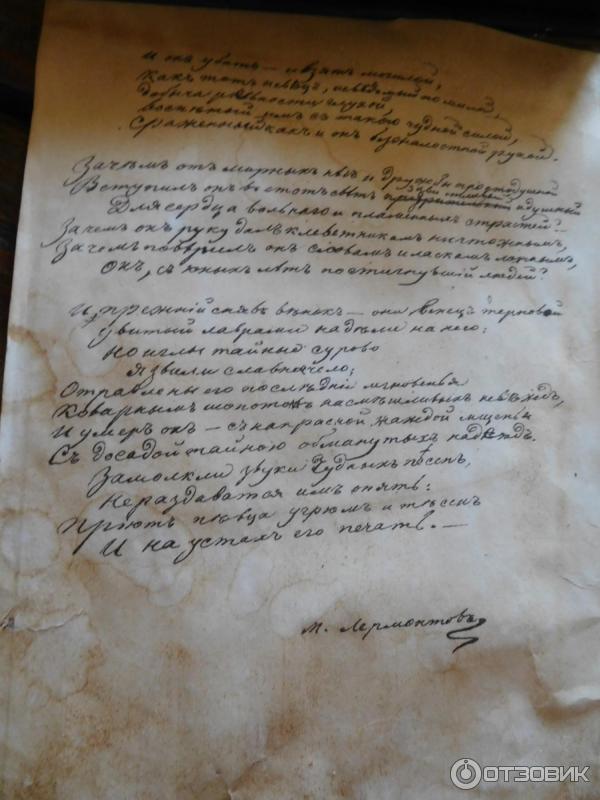 И онъ убитъ — и взятъ могилой,
Какъ тотъ пѣвецъ, невѣдомый но милый,
Добыча ревности глухой,
Воспѣтый имъ съ такою чудной силой,
Сраженный какъ и онъ безжалостной рукой.
Зачѣмъ отъ мирныхъ нѣгъ и дружбы простодушной
Вступилъ онъ въ этотъ свѣтъ завистливый и душный
Для сердца вольнаго и пламенныхъ страстей?..
Зачемъ онъ руку далъ клеветникамъ ничтожнымъ,
Зачемъ повѣрилъ онъ словамъ и ласкамъ ложнымъ,
Онъ, съ юныхъ лѣтъ постигнувшій людей?
И прежній снявъ вѣнокъ — они венецъ терновой
увитый лаврами надѣли на него:
Но иглы тайныя сурово
Язвили славное чело;
Отравлены его послѣднія мгновенья
Коварнымъ шопотомъ насмѣшливыхъ невѣждъ,
И умеръ онъ — съ напрасной жаждой мщенья
Съ досадой тайною обманутыхъ надеждъ.
Замолкли звуки чудныхъ пѣсенъ,
Не раздаватся имъ опять:
Пріютъ пѣвца угрюмъ и тѣсенъ
И на устахъ его печать. —
М. Лермонтовъ
ОТЗОВИК